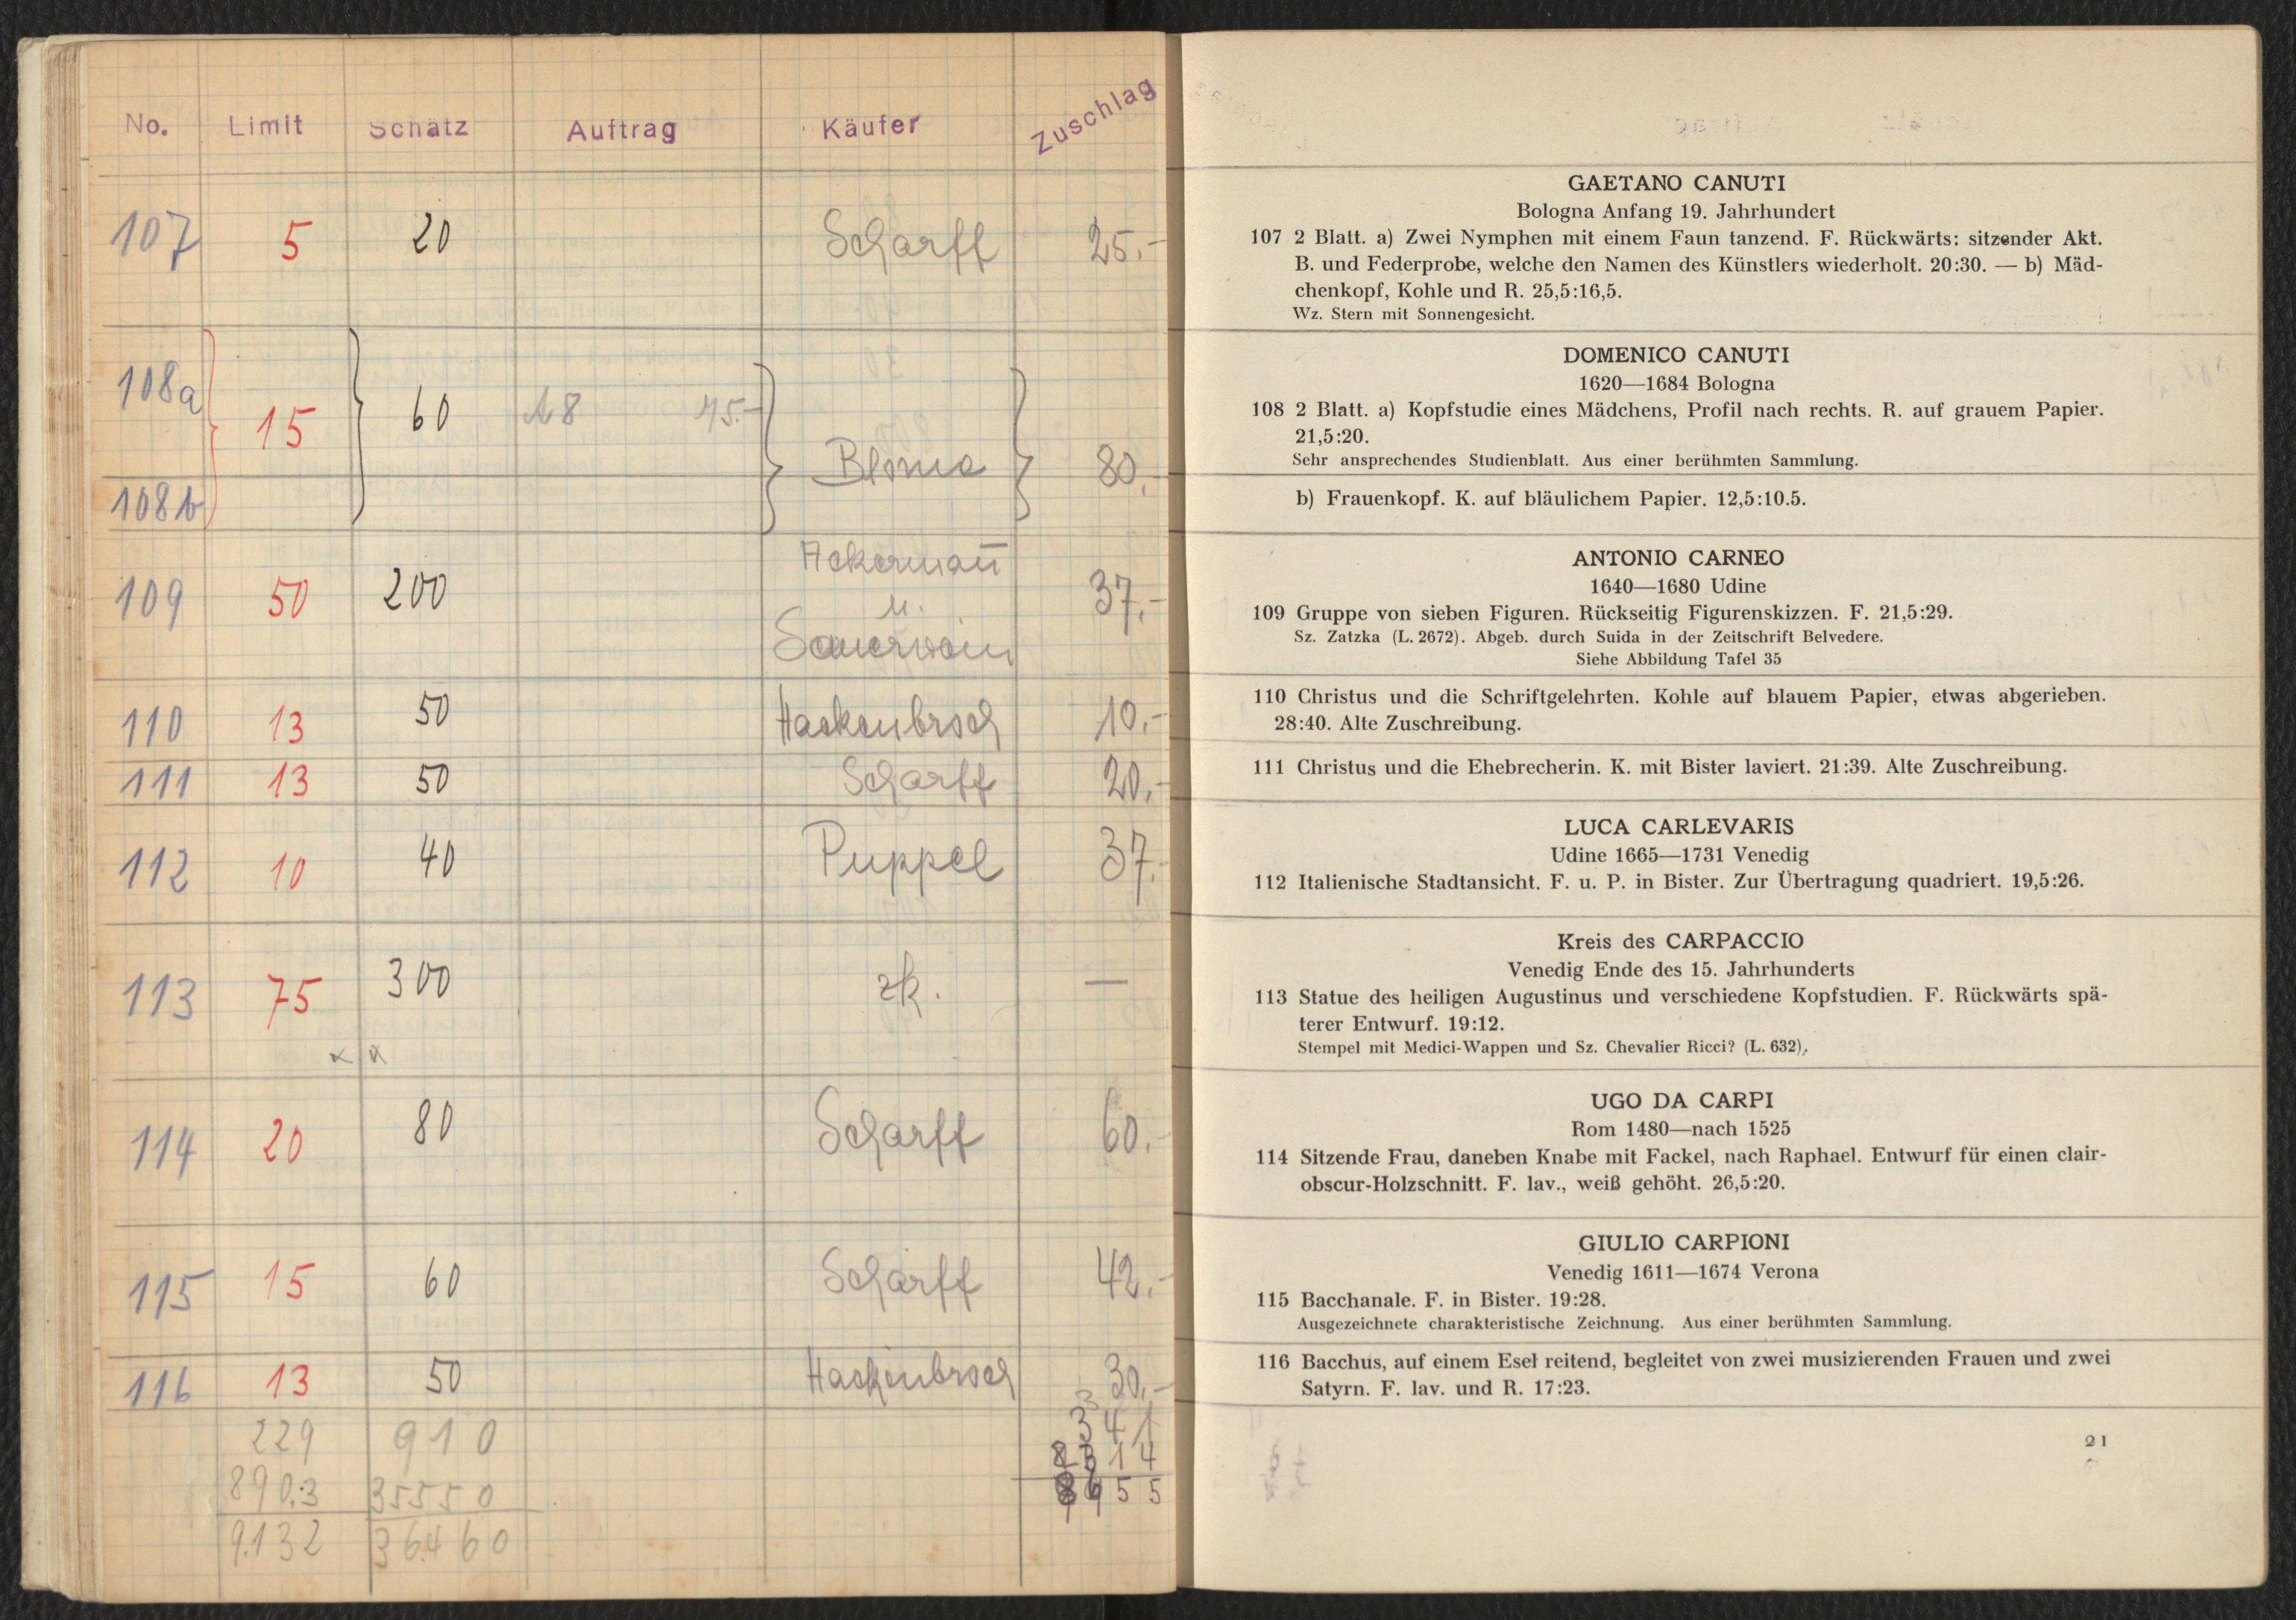 No. Limit Schätz Auftrag Käufer Zuschlag
107 5 20 Scharff 25.-
108a 15 60 A8 45.- Blome 80.-
108b
109 50 200 Ackermañ 37.-
u.
Sauerwein
110 13 50 Hackenbroch 10.-
111 13 50 Scharff 20.-
112 10 40 Puppel 37.-
113 75 300 zk. —
x x
114 20 80 Scharff 60.-
115 15 60 Scharff 42.-
116 13 50 Hackenbroch 30.-
229 910 341
890.3 35550 8314
9.132 36460 8655
GAETANO CANUTI
Bologna Anfang 19. Jahrhundert
107 2 Blatt. a) Zwei Nymphen mit einem Faun tanzend. F. Rückwärts: sitzender Akt.
B. und Federprobe, welche den Namen des Künstlers wiederholt. 20:30. — b) Mäd-
chenkopf, Kohle und R. 25,5:16,5.
Wz. Stern mit Sonnengesicht.
DOMENICO CANUTI
1620—1684 Bologna
108 2 Blatt. a) Kopfstudie eines Mädchens, Profil nach rechts. R. auf grauem Papier.
21,5:20.
Sehr ansprechendes Studienblatt. Aus einer berühmten Sammlung.
b) Frauenkopf. K. auf bläulichem Papier. 12,5:10.5.
ANTONIO CARNEO
1640—1680 Udine
109 Gruppe von sieben Figuren. Rückseitig Figurenskizzen. F. 21,5:29.
Sz. Zatzka (L. 2672). Abgeb. durch Suida in der Zeitschrift Belvedere.
Siehe Abbildung Tafel 35
110 Christus und die Schriftgelehrten. Kohle auf blauem Papier, etwas abgerieben.
28:40. Alte Zuschreibung.
111 Christus und die Ehebrecherin. K. mit Bister laviert. 21:39. Alte Zuschreibung.
LUCA CARLEVARIS
Udine 1665—1731 Venedig
112 Italienische Stadtansicht. F. u. P. in Bister. Zur Übertragung quadriert. 19,5:26.
Kreis des CARPACCIO
Venedig Ende des 15. Jahrhunderts
113 Statue des heiligen Augustinus und verschiedene Kopfstudien. F. Rückwärts spä-
terer Entwurf. 19:12.
Stempel mit Medici-Wappen und Sz. Chevalier Ricci? (L. 632).
UGO DA CARPI
Rom 1480—nach 1525
114 Sitzende Frau, daneben Knabe mit Fackel, nach Raphael. Entwurf für einen clair-
obscur-Holzschnitt. F. lav., weiß gehöht. 26,5:20.
GIULIO CARPIONI
Venedig 1611—1674 Verona
115 Bacchanale. F. in Bister. 19:28.
Ausgezeichnete charakteristische Zeichnung. Aus einer berühmten Sammlung.
116 Bacchus, auf einem Esel reitend, begleitet von zwei musizierenden Frauen und zwei
Satyrn. F. lav. und R. 17:23.
21